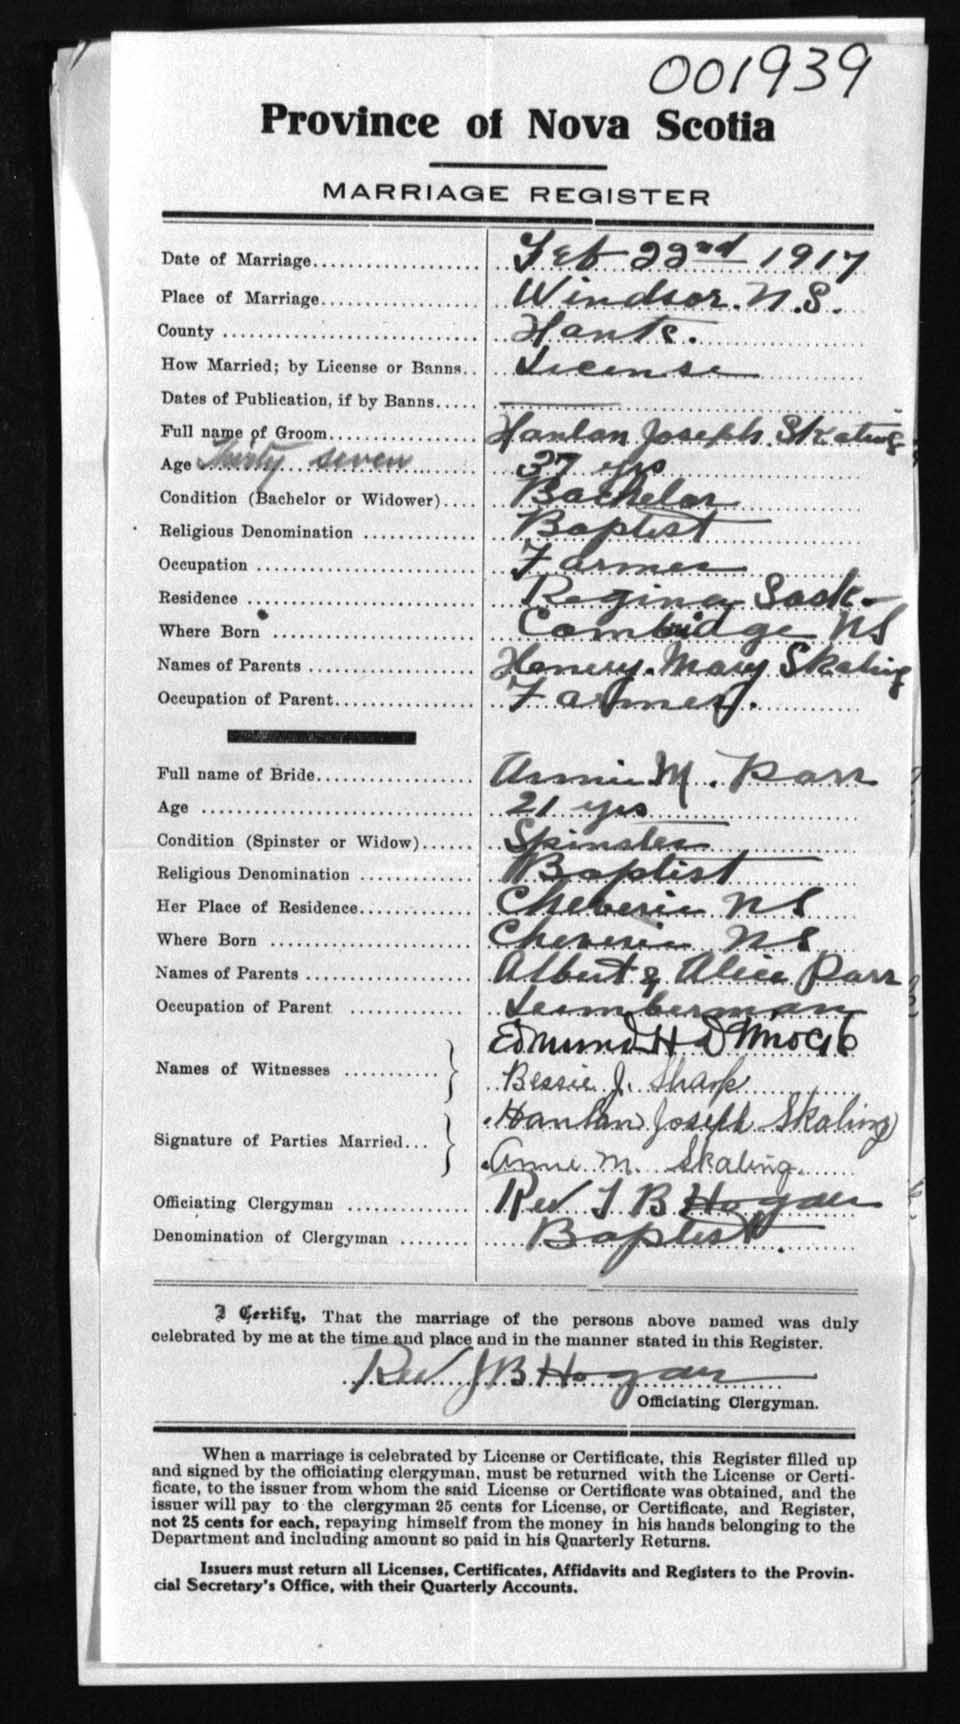 001939
Province of Nova Scotia
MARRIAGE REGISTER
Date of Marriage.................... Feb 22nd 1917
Place of Marriage................... Windsor. N.S.
County .............................. Hants.
How Married; by License or Banns.. License
Dates of Publication, if by Banns..... ———
Full name of Groom.................. Hanlan Joseph Skaling
Age Thirty seven 37 yrs
Condition (Bachelor or Widower).... Bachelor
Religious Denomination ............. Baptist
Occupation .......................... Farmer
Residence ........................... Regina Sask-
Where Born ........................ Cambridge NS
Names of Parents ................... Henery. Mary Skaling
Occupation of Parent................ Farmer.
Full name of Bride................... Annie M. Parr
Age ................................. 21 yrs
Condition (Spinster or Widow)...... Spinster
Religious Denomination ............. Baptist
Her Place of Residence.............. Cheverie NS
Where Born ........................ Cheverie NS
Names of Parents ................... Albert & Alice Parr
Occupation of Parent ............. Lumberman
Edmund H D
Names of Witnesses ...........
Bessie J. Sharp
Hanlan Joseph Skaling
Signature of Parties Married...
Annie M. Skaling.
Officiating Clergyman .............. Rev J B Hogan
Denomination of Clergyman ........ Baptist.
I Certify, That the marriage of the persons above named was duly
celebrated by me at the time and place and in the manner stated in this Register.
Rev J B Hogan
Officiating Clergyman.
When a marriage is celebrated by License or Certificate, this Register filled up
and signed by the officiating clergyman, must be returned with the License or Certi-
ficate, to the issuer from whom the said License or Certificate was obtained, and the
issuer will pay to the clergyman 25 cents for License, or Certificate, and Register,
not 25 cents for each, repaying himself from the money in his hands belonging to the
Department and including amount so paid in his Quarterly Returns.
Issuers must return all Licenses, Certificates, Affidavits and Registers to the Provin-
cial Secretary's Office, with their Quarterly Accounts.